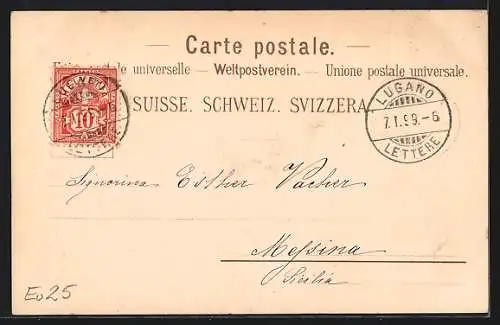 — Carte postale. —
postale universelle — Weltpostverein. — Unione postale universale.
SUISSE. SCHWEIZ. SVIZZERA.
HELVETIA
10
LUGANO
7.I.99.-6
LETTERE
Signorina Esther Vacher
Messina
Sicilia
Eu25